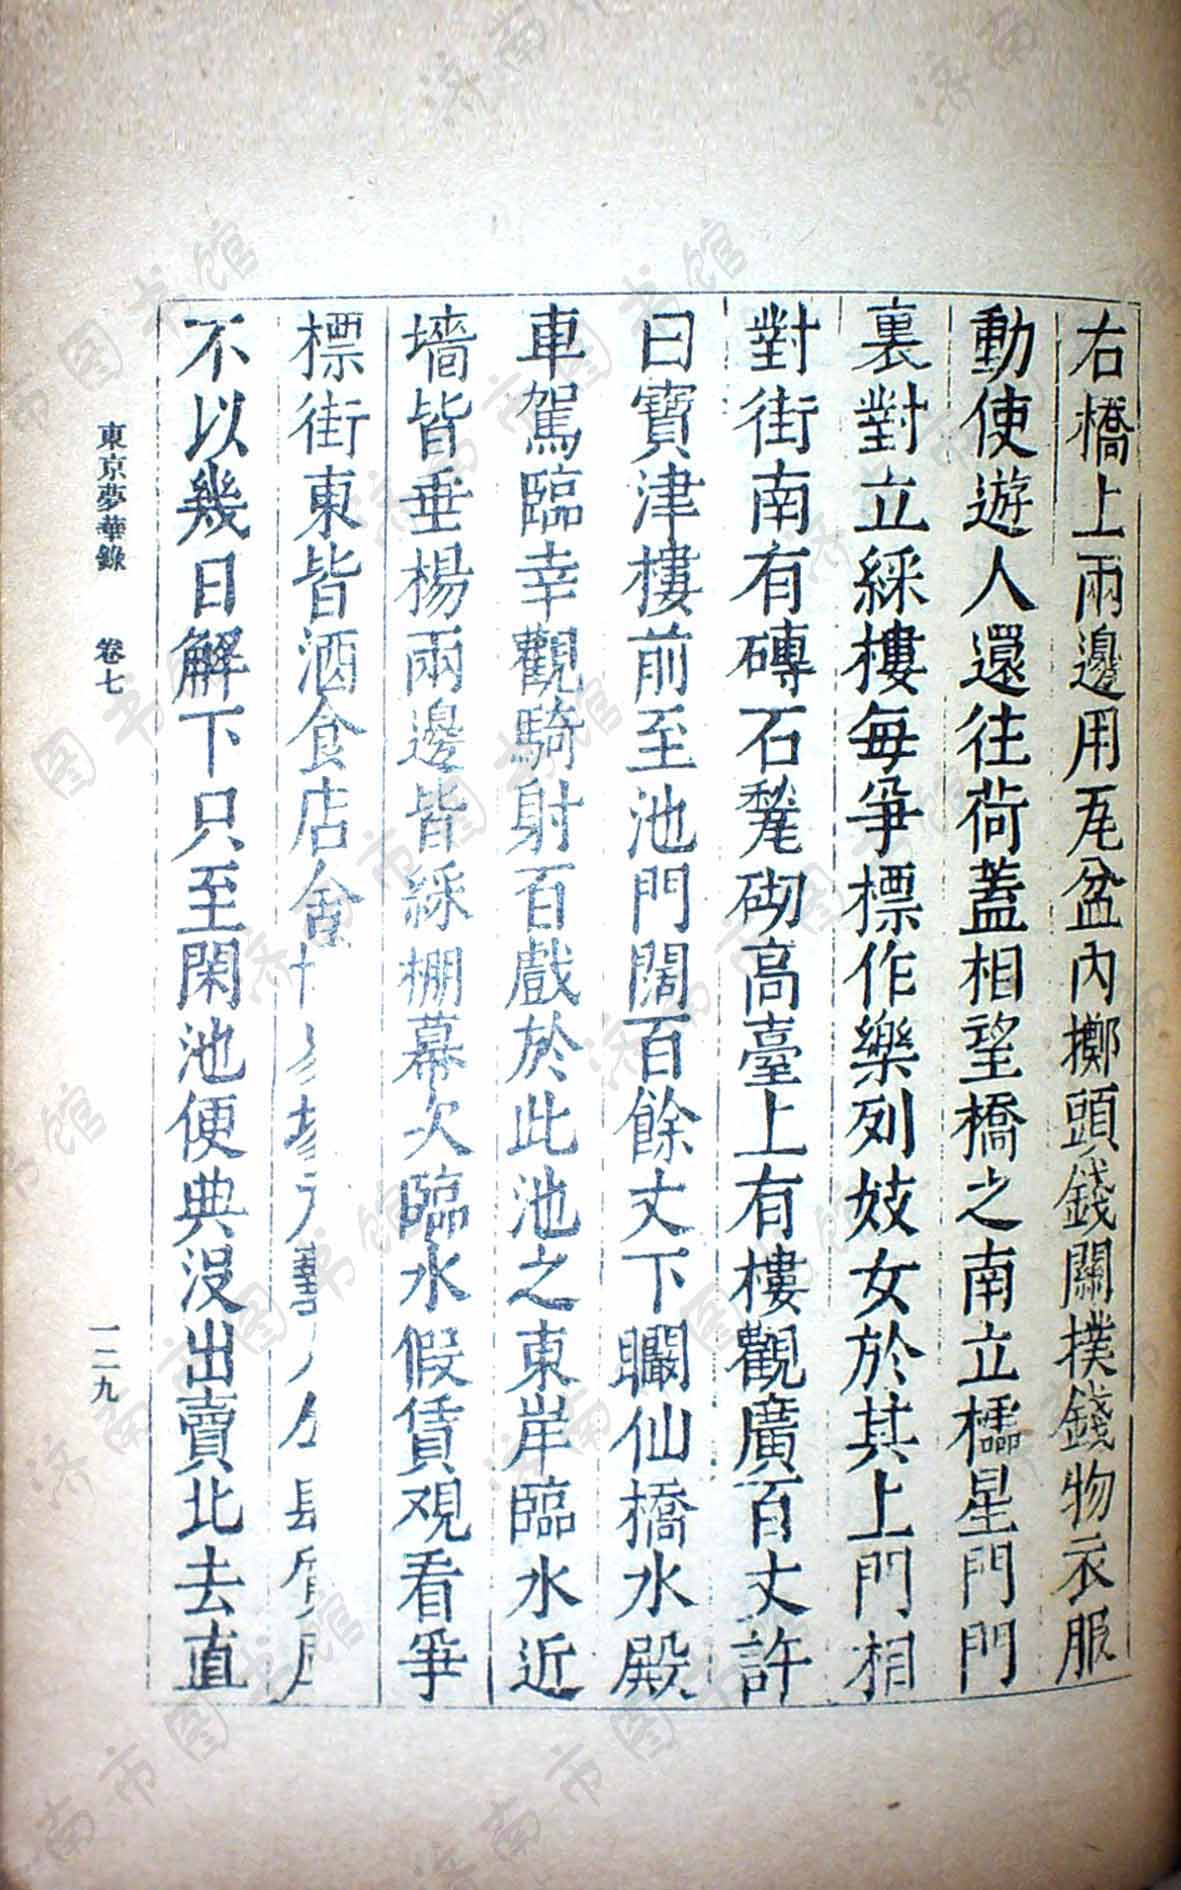 右橋上兩邊用瓦盆內擲頭錢關撲錢物衣服
動使遊人還往荷蓋相望橋之南立櫺星門門
裏對立綵樓每爭標作樂列妓女於其上門相
對街南有磚石甃砌高臺上有樓觀廣百丈許
曰寶津樓前至池門闊百餘丈下瞰仙橋水殿
車駕臨幸觀騎射百戲於此池之東岸臨水近
墻皆垂楊兩邊皆綵棚幕次臨水假賃观看爭
標街東皆酒食店舍
不以幾日解下只至閑池便典沒出賣北去直
東京夢華錄 卷七
一二九
济南市图书馆